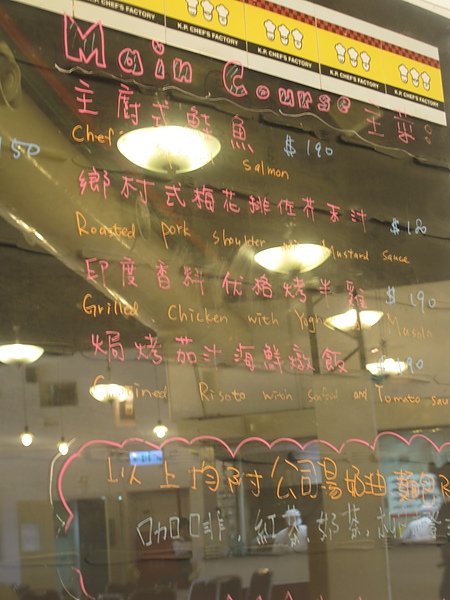 K.P. CHEF'S FACTORY K.P. CHEF'S FACTORY K.P. CHEF'S FACTORY K.P. CHEF'S FACTORY
Main Course 主菜:
主廚式鮭魚 $190
Chef' Salmon
鄉村式梅花排佐芥末汁 $180
Roasted pork shoulder Mustard sauce
印度香料優格烤半雞 $190
Grilled Chicken with Masala
焗烤茄汁海鮮燉飯
Risoto with and Tomato
以上均附公司
咖啡,紅茶,奶茶,